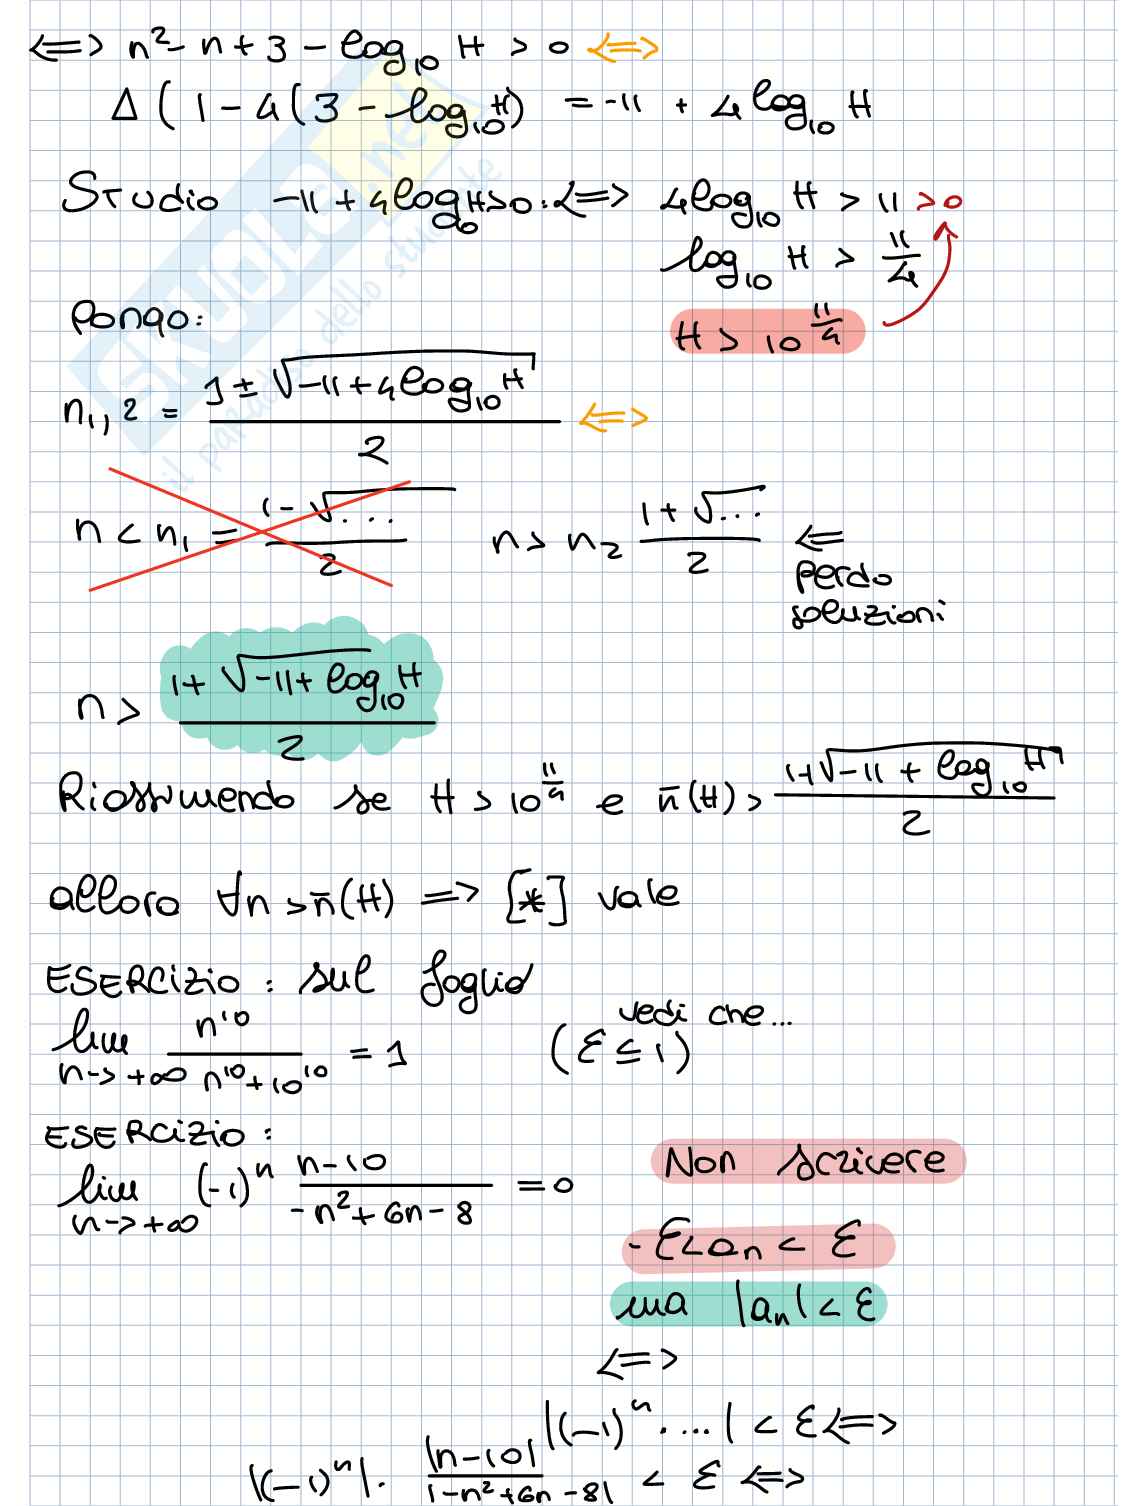 ⟺ n² - n + 3 - log₁₀ H > 0 ⟺
Δ ( 1 - 4 ( 3 - log₁₀ H ) = -11 + 4 log₁₀ H
Studio -11 + 4 log₁₀ H > 0 : ⟺ 4 log₁₀ H > 11 > 0
log₁₀ H > 11/4
Pongo:
H > 10^(11/4)
n₁,₂ = (1 ± √(-11 + 4 log₁₀ H)) / 2 ⟺
n < n₁ = (1 - √...) / 2 n > n₂ (1 + √...) / 2 ⟸
perdo
soluzioni
n > (1 + √(-11 + log₁₀ H)) / 2
Riassumendo se H > 10^(11/4) e n̄(H) > (1 + √(-11 + log₁₀ H)) / 2
allora ∀n > n̄(H) ⟹ [*] vale
ESERCIZIO : sul foglio
lim n→+∞ n¹⁰ / (n¹⁰ + 10¹⁰) = 1 vedi che... (ε ≤ 1)
ESERCIZIO :
lim n→+∞ (-1)ⁿ (n - 10) / (-n² + 6n - 8) = 0
Non scrivere
- ε < aₙ < ε
ma |aₙ| < ε
⟺
|(-1)ⁿ · ....| < ε ⟺
|(-1)ⁿ| · |n - 10| / |-n² + 6n - 8| < ε ⟺
SKUOLA.net
il paradiso dello studente